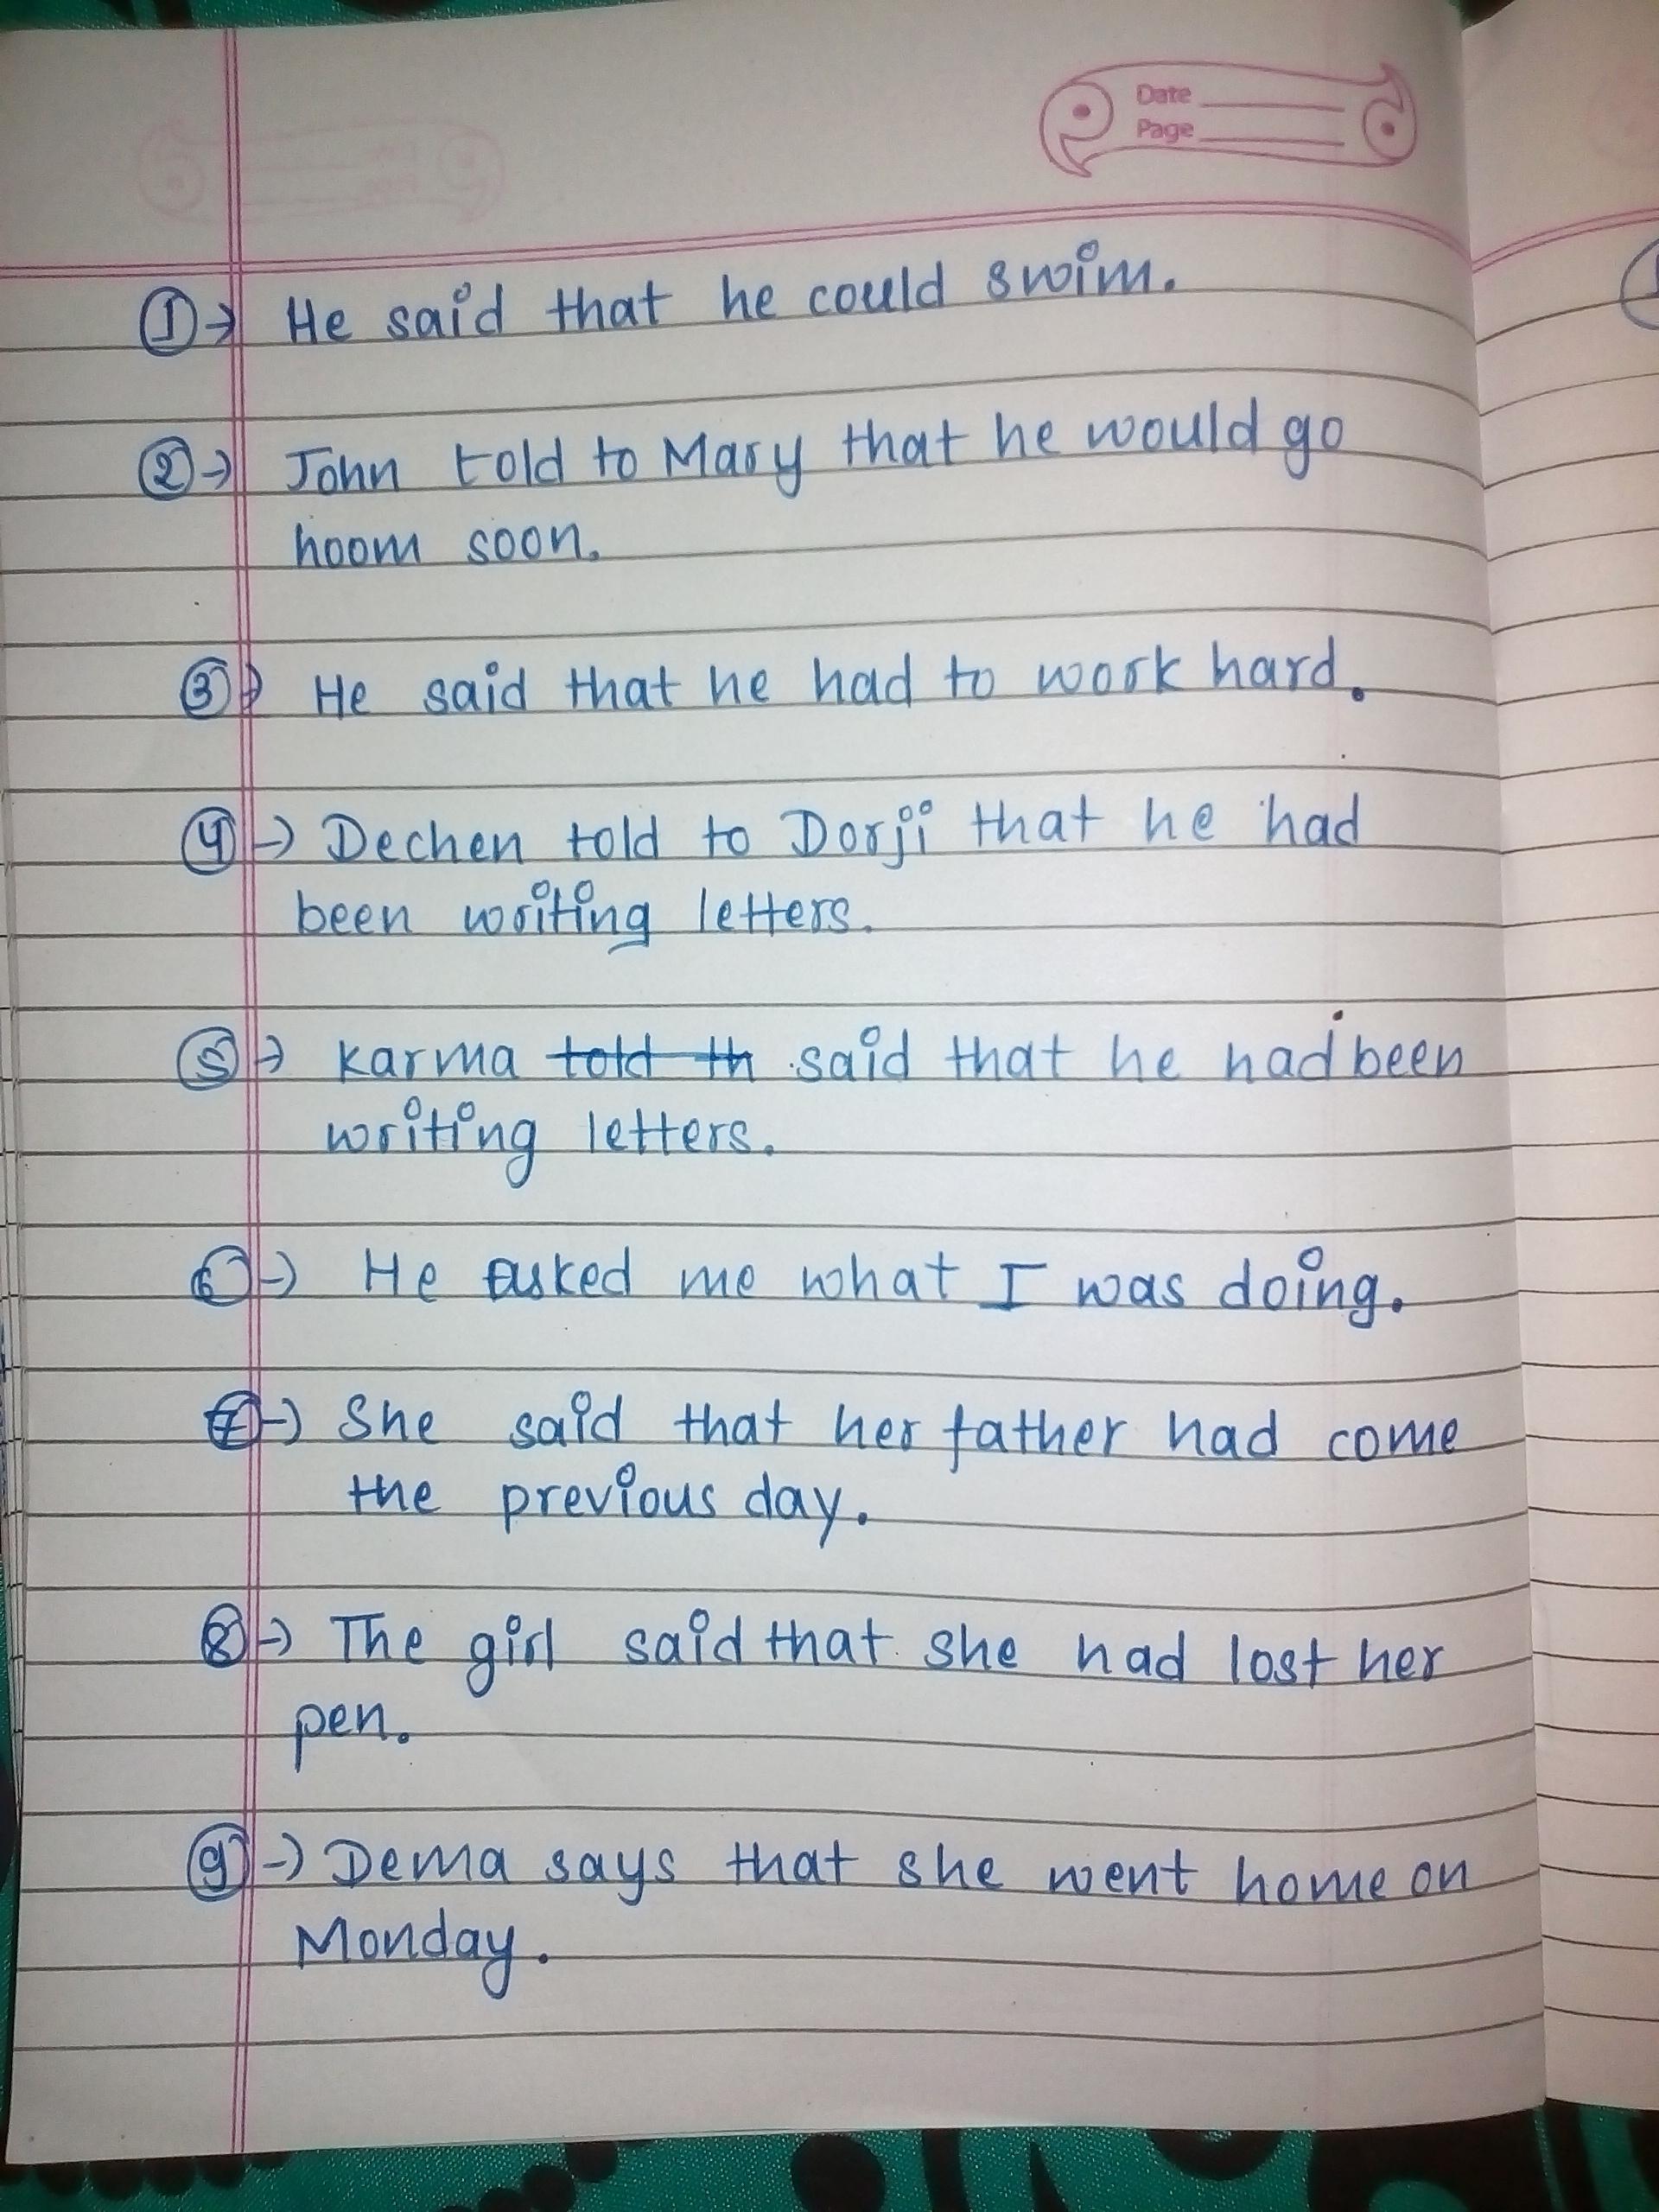 Date
Page
①→ He said that he could swim.
②→ John told to Mary that he would go
hoom soon.
③→ He said that he had to work hard.
④→ Dechen told to Dorji that he had
been writing letters.
⑤→ Karma ~~told th~~ said that he had been
writing letters.
⑥→ He asked me what I was doing.
⑦→ She said that her father had come
the previous day.
⑧→ The girl said that she had lost her
pen.
⑨→ Dema says that she went home on
Monday.